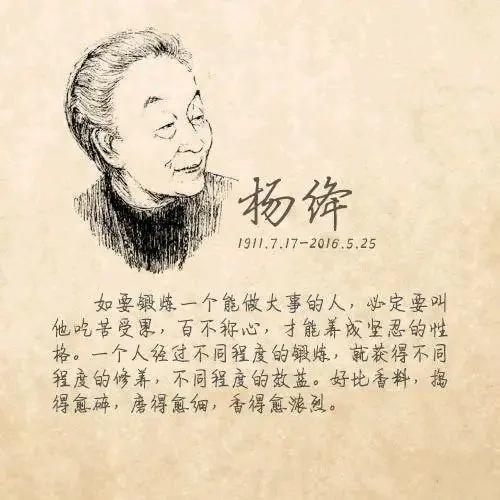 杨绛
1911.7.17-2016.5.25
如要锻炼一个能做大事的人，必定要叫
他吃苦受累，百不称心，才能养成坚忍的性
格。一个人经过不同程度的锻炼，就获得不同
程度的修养，不同程度的效益。好比香料，捣
得愈碎，磨得愈细，香得愈浓烈。